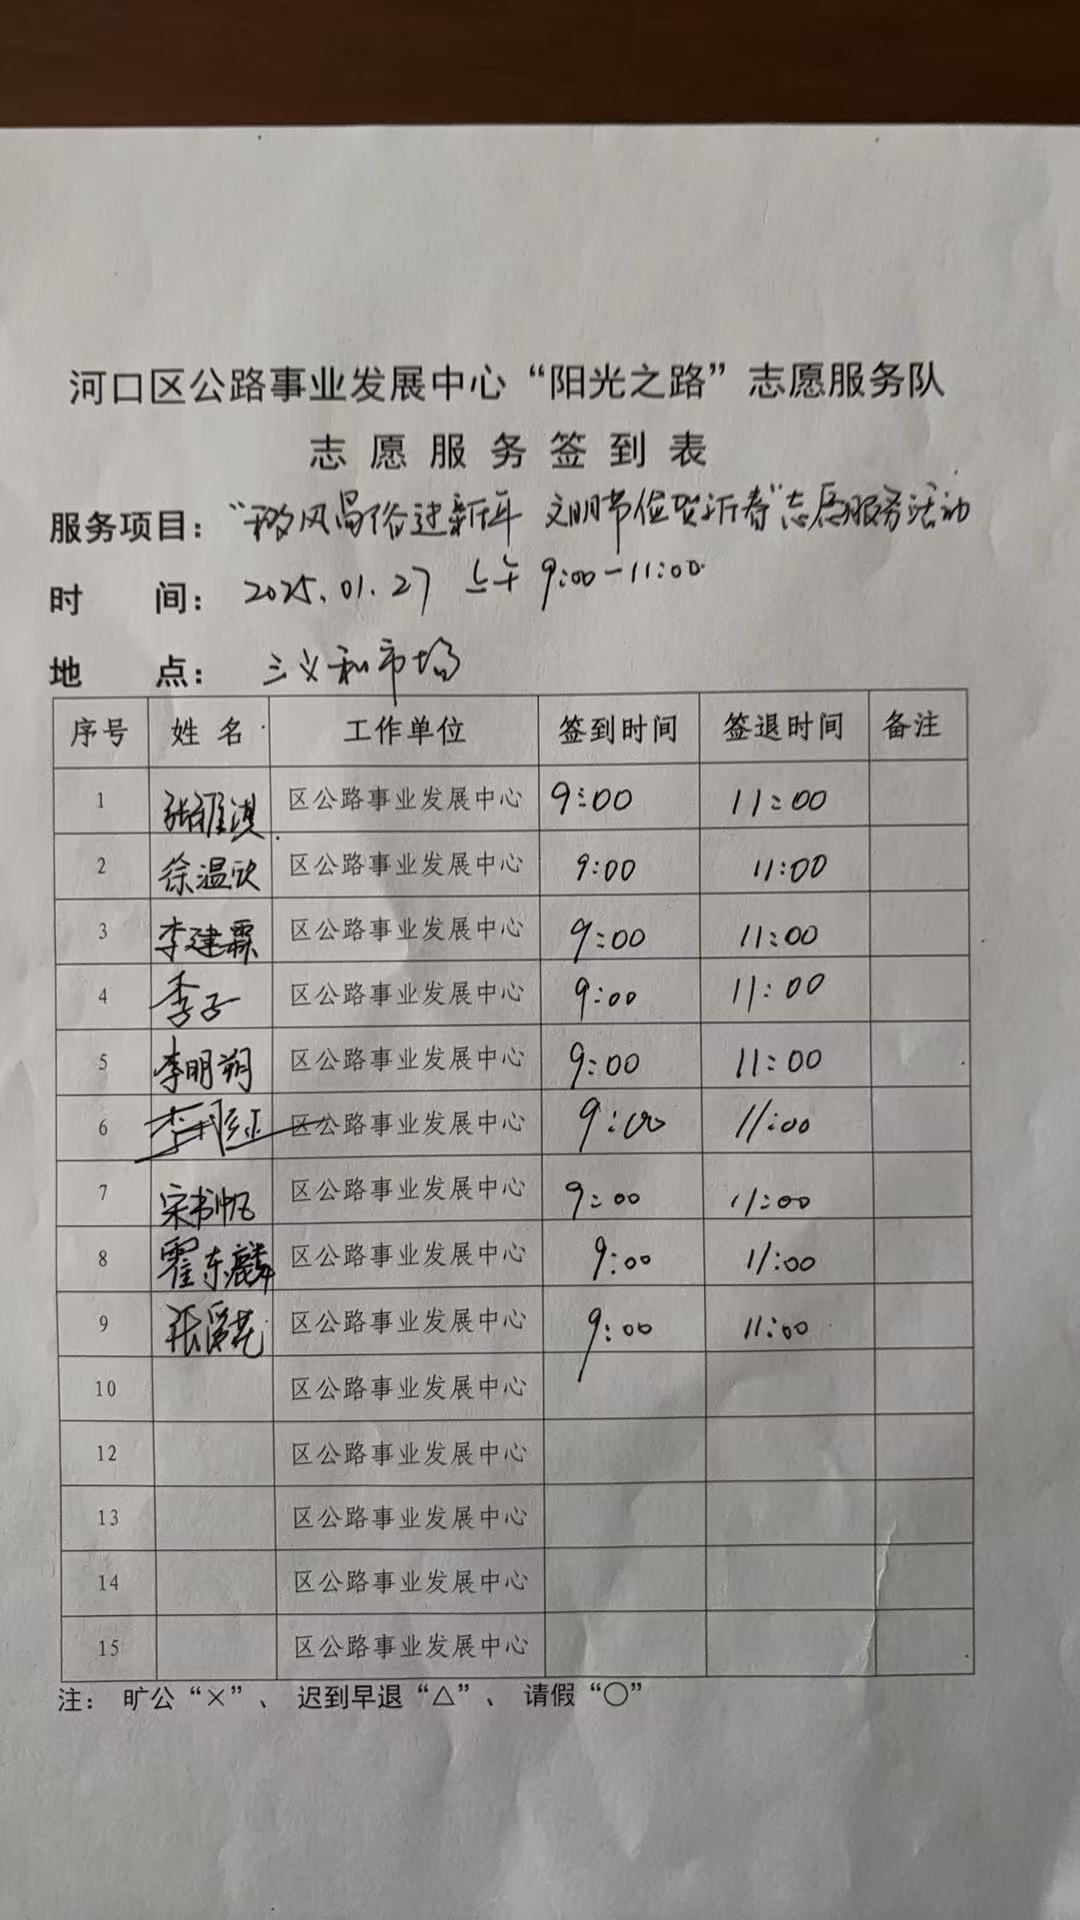 河口区公路事业发展中心“阳光之路”志愿服务队
志愿服务签到表
服务项目：“移风易俗过新年 文明节俭贺新春”志愿服务活动
时 间：2025.01.27 上午 9:00-11:00
地 点：三义和市场
序号 姓名 工作单位 签到时间 签退时间 备注
1 张雅淇 区公路事业发展中心 9:00 11:00
2 徐温欣 区公路事业发展中心 9:00 11:00
3 李建霖 区公路事业发展中心 9:00 11:00
4 李子 区公路事业发展中心 9:00 11:00
5 李明朔 区公路事业发展中心 9:00 11:00
6 区公路事业发展中心 9:00 11:00
7 宋书帆 区公路事业发展中心 9:00 11:00
8 霍东麟 区公路事业发展中心 9:00 11:00
9 区公路事业发展中心 9:00 11:00
10 区公路事业发展中心
12 区公路事业发展中心
13 区公路事业发展中心
14 区公路事业发展中心
15 区公路事业发展中心
注： 旷公“×”、 迟到早退“△”、 请假“○”